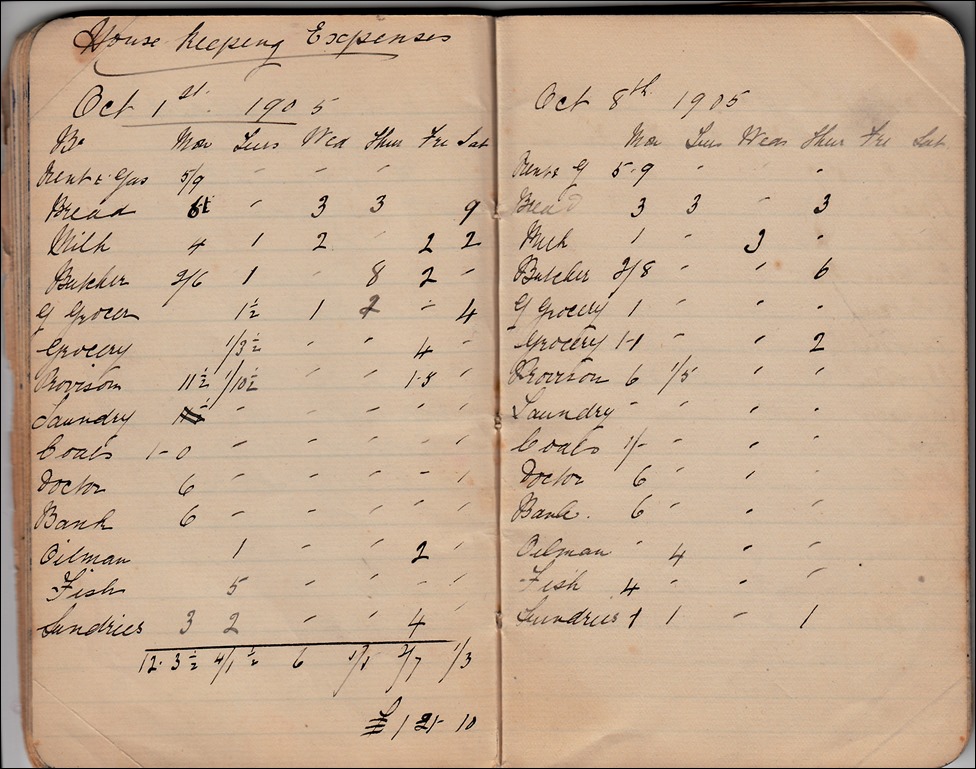 House Keeping Expenses
Oct 1st. 1905
Mon Tues Wed Thur Fri Sat
Rent & Gas 5/9 " " "
Bread " 3 3 9
Milk 4 1 2 " 2 2
Butcher 2/6 1 " 8 2 "
G Grocer 1½ 1 2 " 4
Grocery 1/3½ " " 4 "
Provison 11½ 1/10½ " " 1-5 "
Laundry " " " " "
Coals 1-0 " " " " "
Doctor 6 " " " " "
Bank 6 " " " " "
Oilman 1 " " 2 "
Fish 5 " " " "
Sundries 3 2 " " 4
12. 3½ 4/1½ 6 1/1 2/7 1/3
£ 1 10
Oct 8th 1905
Mon Tues Weds Thur Fri Sat
Rent & G 5-9 " "
Bread 3 3 " 3
Milk 1 " 3 "
Butcher 2/8 " " 6
G Grocery 1 " " "
Grocery 1-1 " 2
Provison 6 1/5 " "
Laundry " " " "
Coals 1/- " " "
Doctor 6 " " "
Bank. 6 " " "
Oilman " 4 " "
Fish 4 " " "
Sundries 1 1 " 1